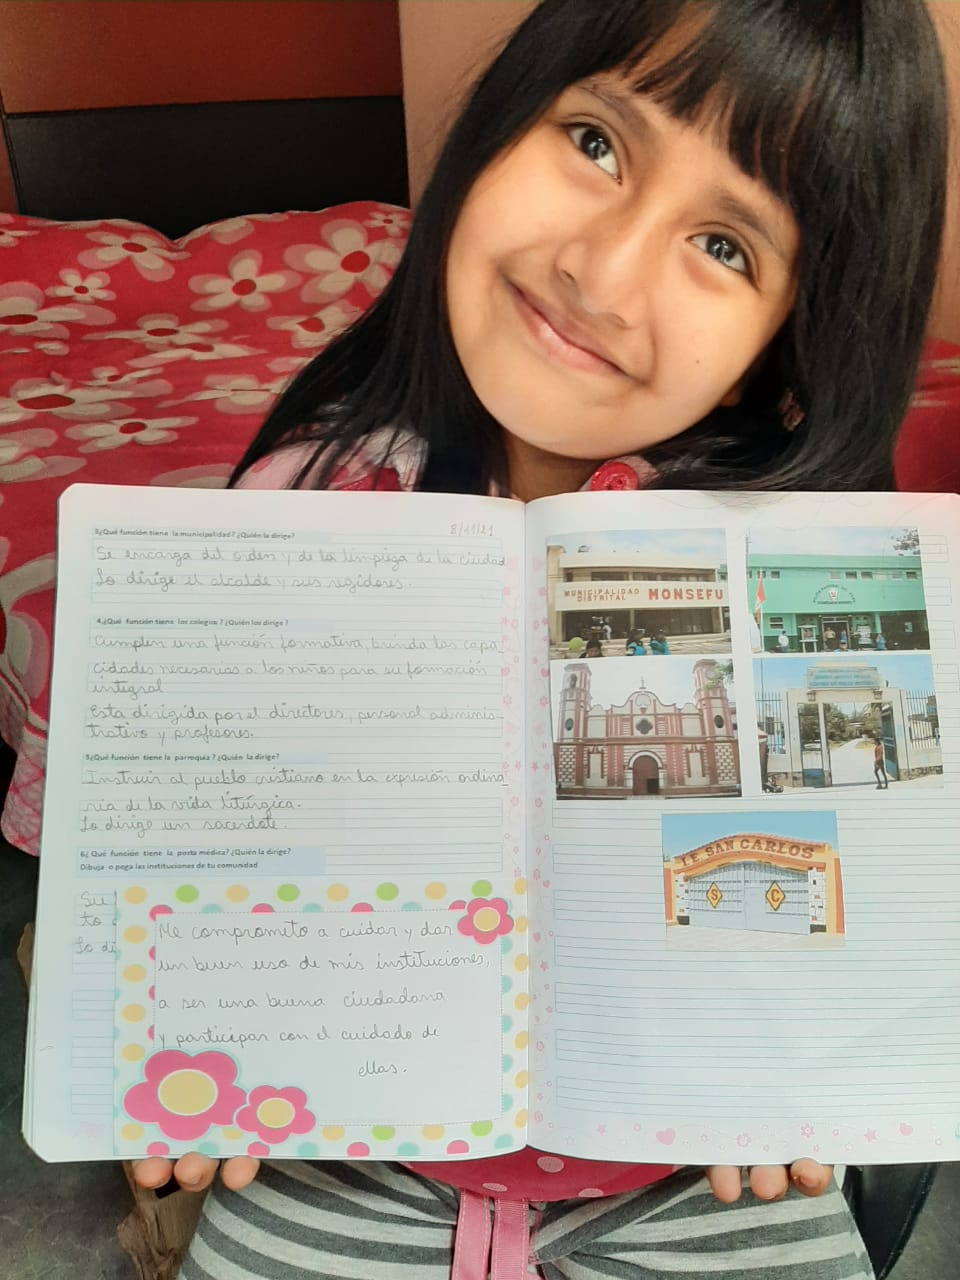 8/11/21
3¿Qué función tiene la municipalidad? ¿Quién la dirige?
Se encarga del orden y de la limpieza de la ciudad
Lo dirige el alcalde y sus regidores.
4.¿Qué función tiene los colegios? ¿Quién los dirige?
Cumplen una función formativa, brinda las capa-
cidades necesarias a los niños para su formación
integral
Esta dirigida por el directores, personal adminis-
trativo y profesores.
5¿Qué función tiene la parroquia? ¿Quién la dirige?
Instruir al pueblo cristiano en la expresión ordina-
ria de la vida litúrgica.
Lo dirige un sacerdote.
6¿Qué función tiene la posta médica? ¿Quién la dirige?
Dibuja o pega las instituciones de tu comunidad
Su
to
Lo di
Me comprometo a cuidar y dar
un buen uso de mis instituciones,
a ser una buena ciudadana
y participar con el cuidado de
ellas.
MUNICIPALIDAD
DISTRITAL MONSEFU
I.E SAN CARLOS
S C